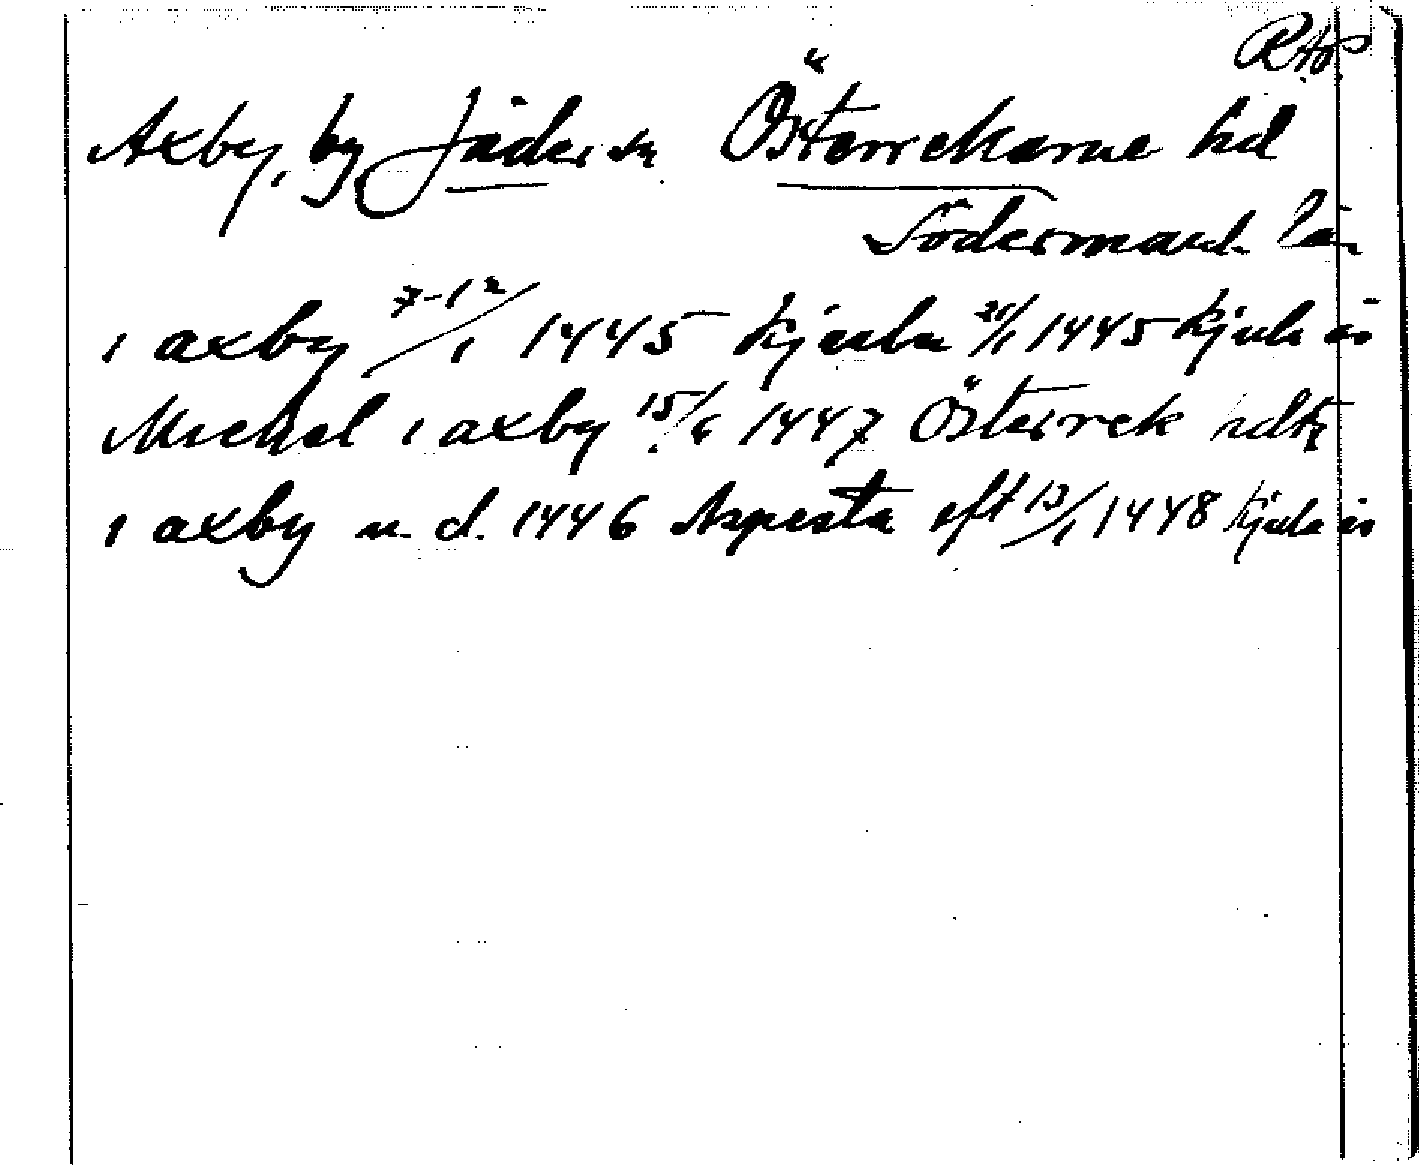 RAp.
Axby, by Jäder sn Österrekarne hd
Södermanl. län
i axby 7-12/1 1445 Kjula 21/1 1445 Kjula ås
Michel i axby 15/6 1447 Österrek hdtg
i axby u. d. 1446 Aspesta eft 13/1 1448 Kjula ås